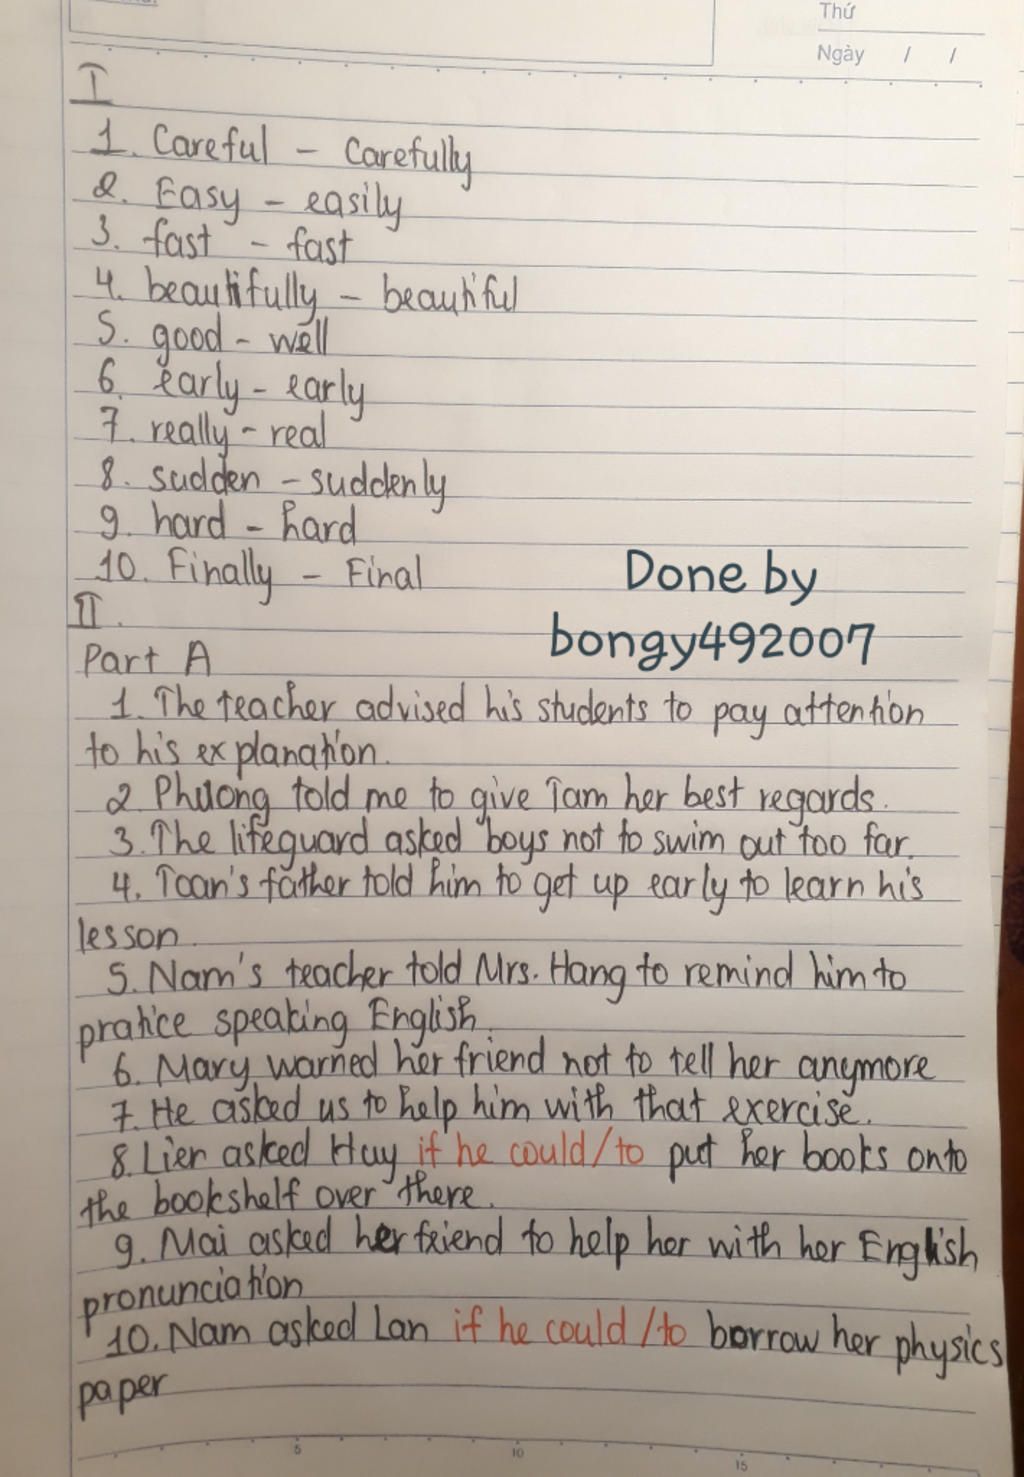 Thứ
Ngày / /
I
1. Careful - Carefully
2. Easy - easily
3. fast - fast
4. beautifully - beautiful
5. good - well
6. early - early
7. really - real
8. sudden - suddenly
9. hard - hard
10. Finally - Final
Done by
II.
bongy492007
Part A
1. The teacher advised his students to pay attention
to his explanation.
2. Phuong told me to give Tam her best regards.
3. The lifeguard asked boys not to swim out too far.
4. Toan's father told him to get up early to learn his
lesson.
5. Nam's teacher told Mrs. Hang to remind him to
pratice speaking English.
6. Mary warned her friend not to tell her anymore
7. He asked us to help him with that exercise.
8. Lier asked Huy if he could/to put her books onto
the bookshelf over there.
9. Mai asked her friend to help her with her English
pronunciation
10. Nam asked Lan if he could /to borrow her physics
paper
5 10 15